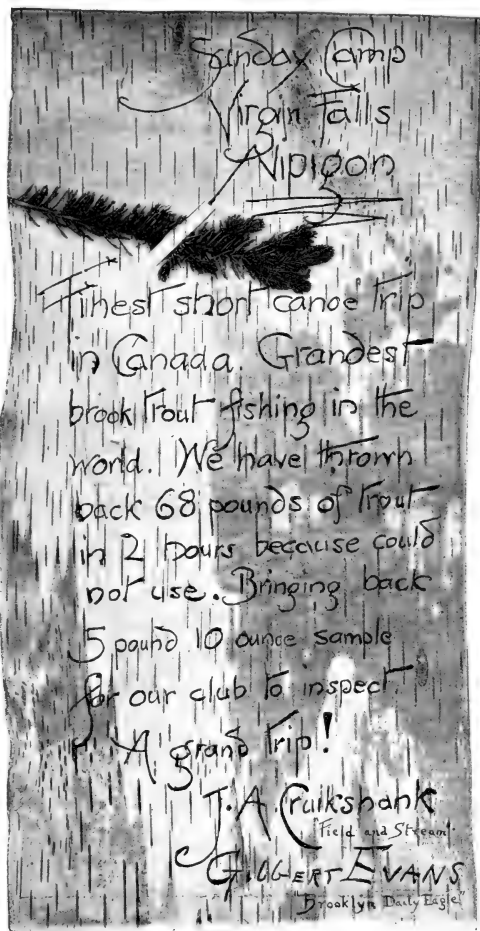 Sunday Camp
Virgin Falls
Nipigon
Finest short canoe trip
in Canada. Grandest
brook trout fishing in the
world. We have thrown
back 68 pounds of trout
in 2 hours because could
not use. Bringing back
5 pound 10 ounce sample
for our club to inspect.
A grand trip!
J. A. Cruikshank
"Field and Stream"
EVANS
"Brooklyn Daily Eagle"